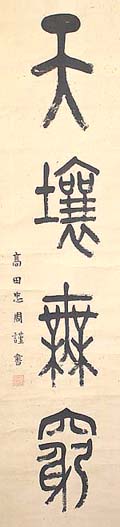 天壌無窮
高田忠周謹書